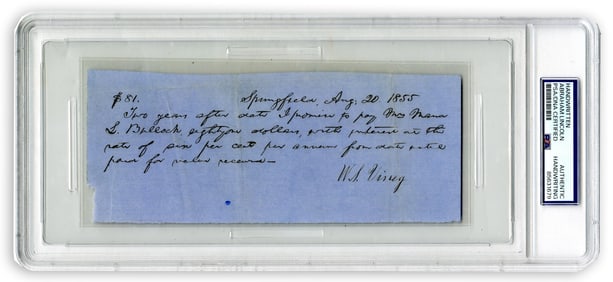 $81. Springfield, Aug. 20. 1855
Two years after date I promise to pay Mrs Maria
L. Bullock eighty one dollars, with interest at the
rate of six per cent per annum from date until
paid for value received—
W. S. Viney
HANDWRITTEN
ABRAHAM LINCOLN
PSA/DNA CERTIFIED
PSA
AUTHENTIC
HANDWRITING